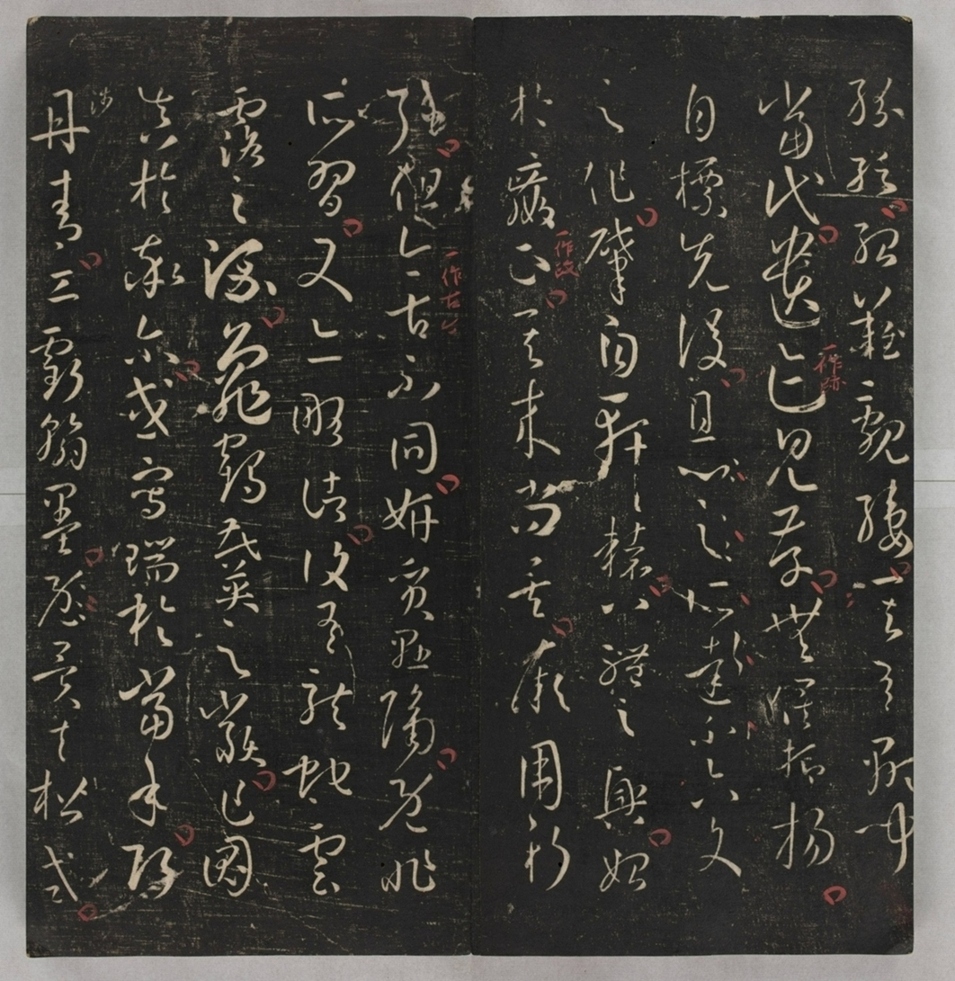 紛紜殆難覼縷其有顯聞
當代遺迹見存無俟抑揚
一作跡
自標先後且心之所達不六文
之作肇自軒轅八體之興始
於嬴正其來尚矣厥用斯
一作政
弘但今古不同妍質懸隔既非
一作古今
所習又亦略諸復有龍蛇雲
露之流龜鶴花英之類乍圖
真於率爾或寫瑞於當年巧
涉
丹青工虧翰墨異夫楷式